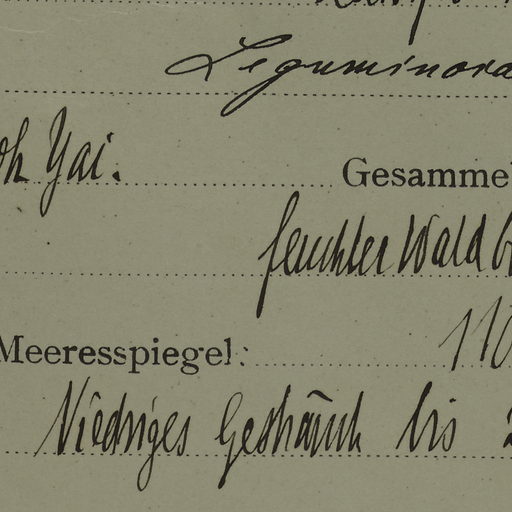 Leguminosa
oh Yai. Gesammel
feuchter Wald b
Meeresspiegel: 110
Niedriges Gesträuch bis 2